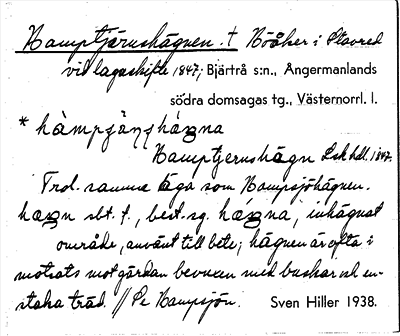 Hamptjärnshägnen. † Nöåker i Stavred
vid lagaskifte 1847; Bjärtrå s:n., Ångermanlands
södra domsagas tg., Västernorrl. l.
* hàmpʃä̀ṇṣhágna
Hamptjernshägn Lsk hdl. 1847.
Trol. samma äga som Hampsjöhägnen.
hägn sbt. f., best. sg. hägna, inhägnat
område, använt till bete; hägnen är ofta i
motsats mot gärdan bevuxen med buskar och en-
staka träd. // Se Hampsjön. Sven Hiller 1938.